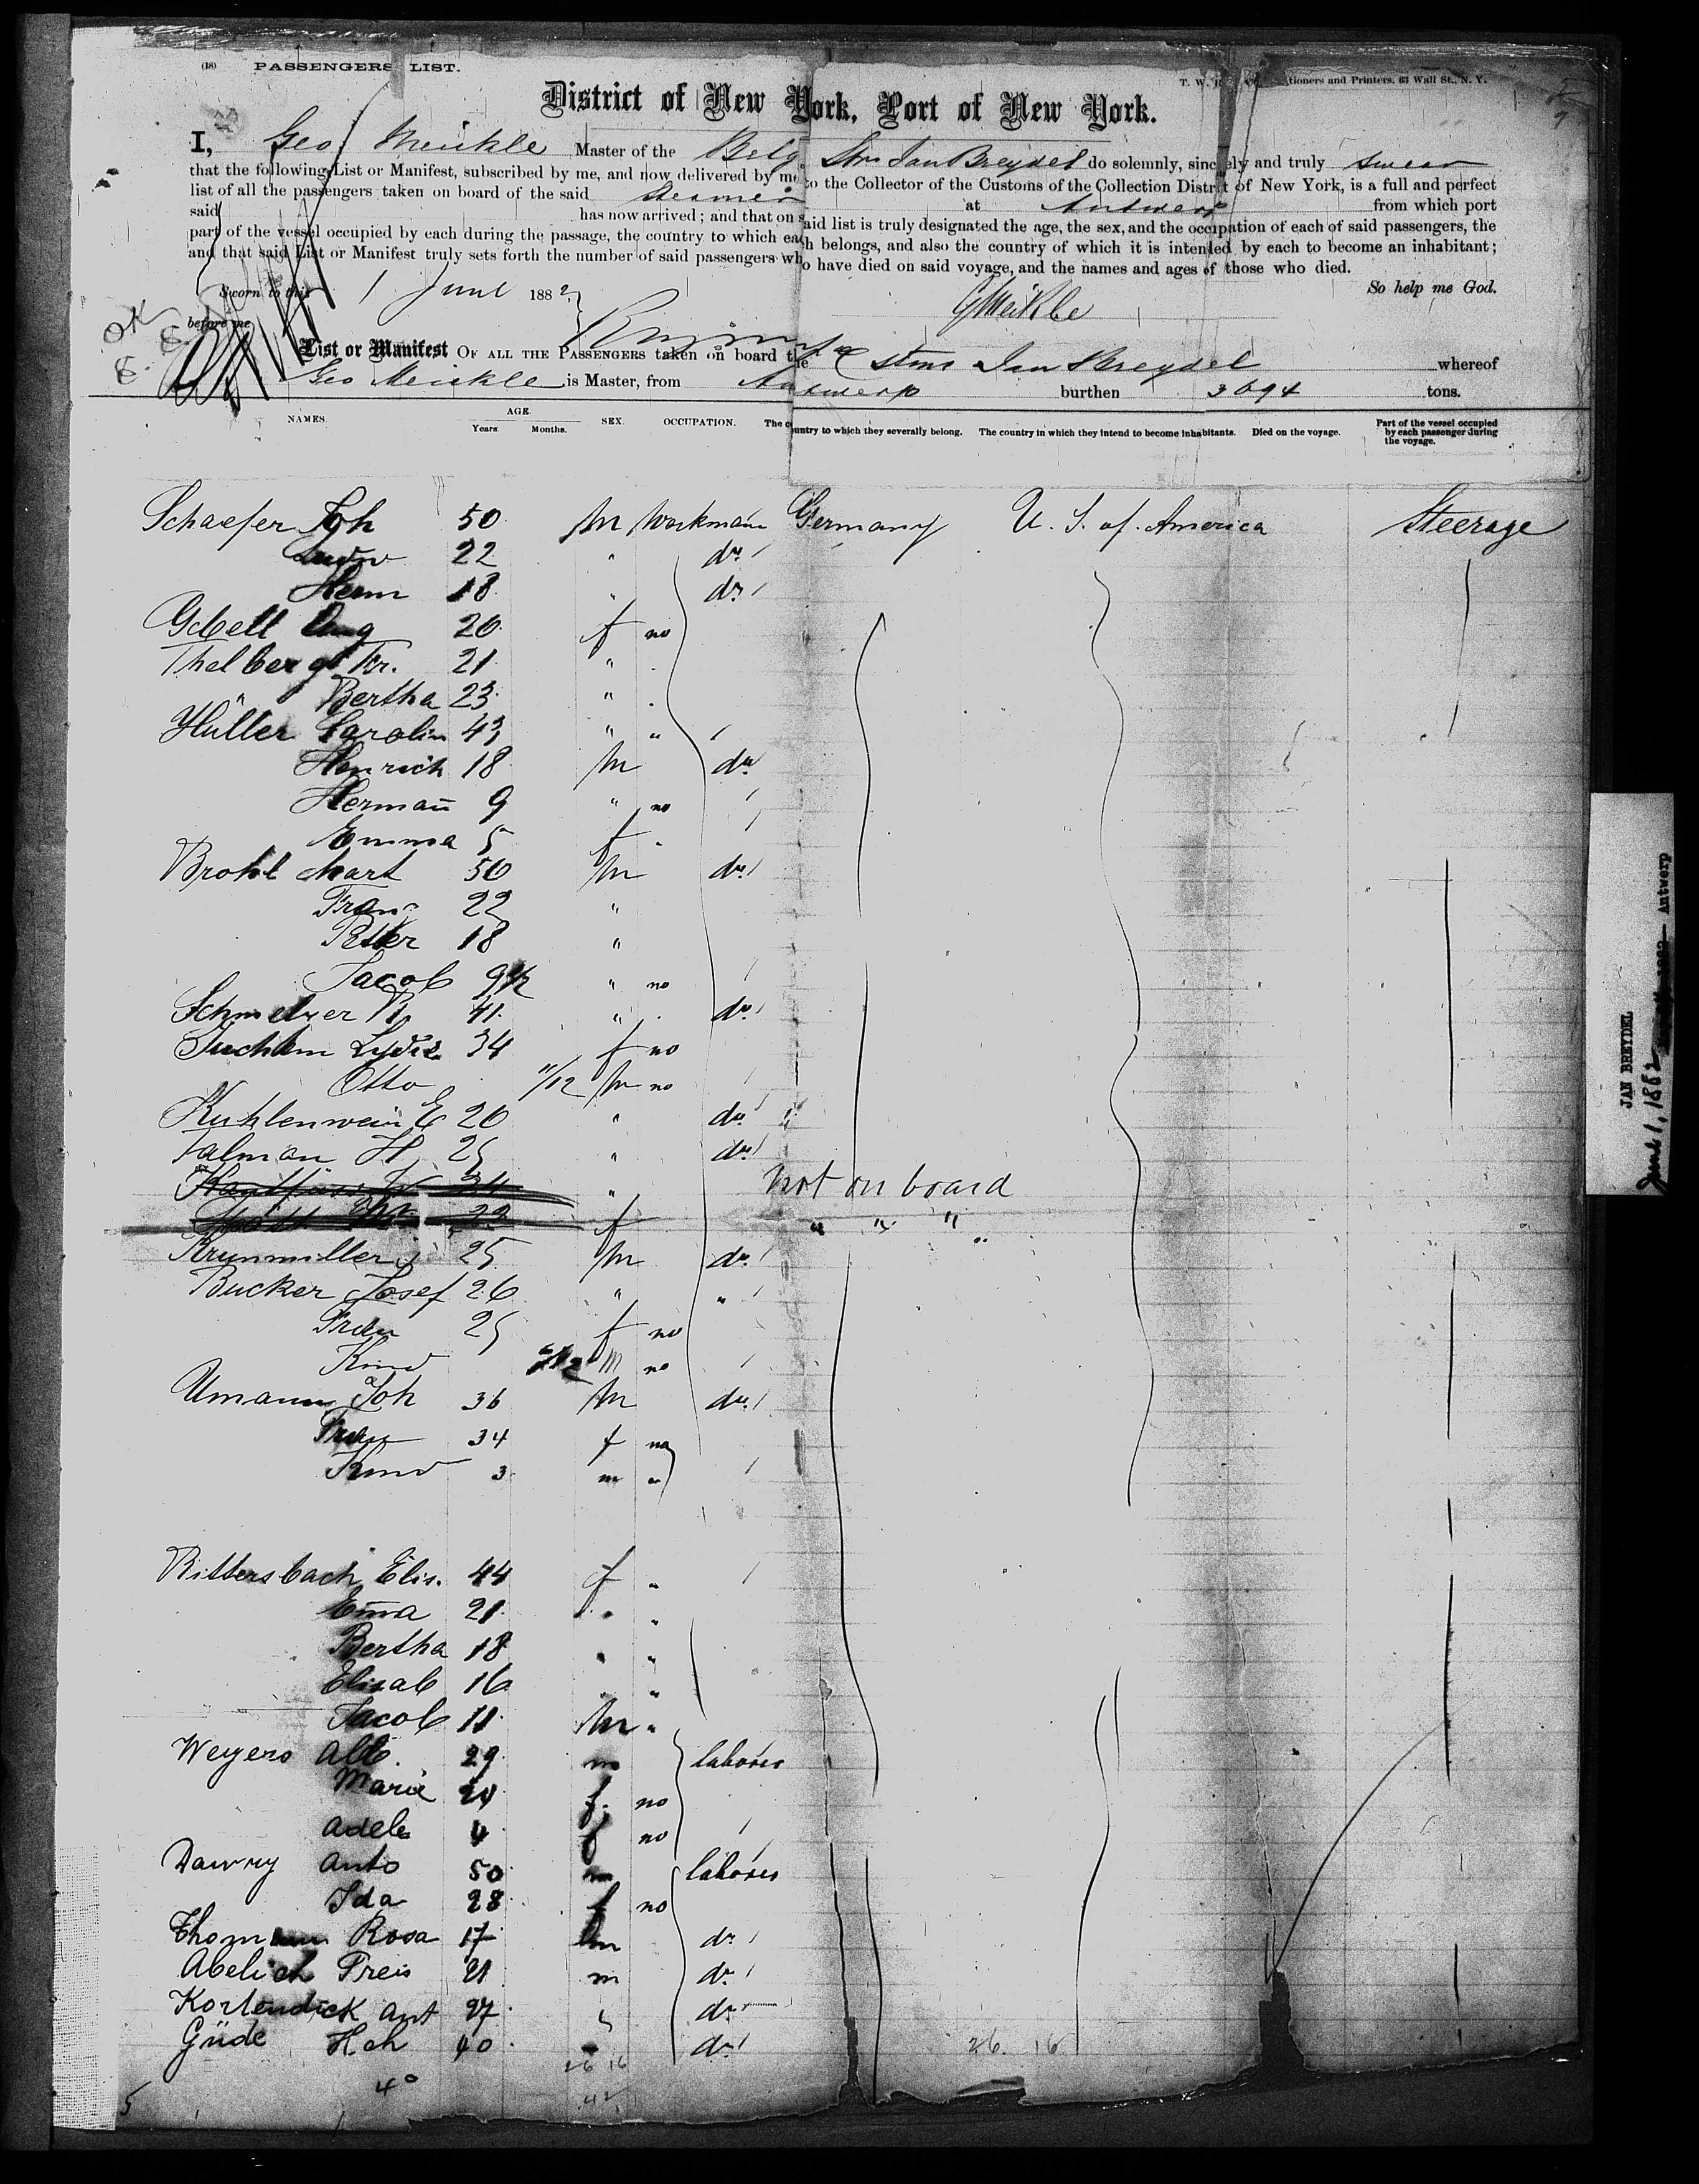 (18) PASSENGERS LIST.
T. W. tioners and Printers, 63 Wall St., N. Y.
District of New York, Port of New York.
I, Geo Meikle Master of the Belg. Stmr Jan Breydel do solemnly, sincerely and truly swear
that the following List or Manifest, subscribed by me, and now delivered by me to the Collector of the Customs of the Collection District of New York, is a full and perfect
list of all the passengers taken on board of the said steamer at Antwerp from which port
said has now arrived; and that on said list is truly designated the age, the sex, and the occupation of each of said passengers, the
part of the vessel occupied by each during the passage, the country to which each belongs, and also the country of which it is intended by each to become an inhabitant;
and that said List or Manifest truly sets forth the number of said passengers who have died on said voyage, and the names and ages of those who died.
Sworn to this 1 June 1882 So help me God.
before me GMeikle
OK
List or Manifest OF ALL THE PASSENGERS taken on board the Stmr Jan Breydel whereof
Geo Meikle is Master, from Antwerp burthen 3694 tons.
NAMES. AGE. Years. Months. SEX. OCCUPATION. The country to which they severally belong. The country in which they intend to become inhabitants. Died on the voyage. Part of the vessel occupied by each passenger during the voyage.
Schaefer Joh 50 m Workman Germany U. S. of America Steerage
Ludw 22 " do
Herm 18 " do
Gobell Aug 20 f no
Thelberg Fr. 21 "
Bertha 23 "
Hüller Carolin 43 " "
Heinrich 18 m do
Hermañ 9 " no
Emma 5 f
Brohl Mart 50 m do
Franz 22 "
Peter 18 "
Jacob 9 1/2 " no
Schmelzer 41 " do
Lydia 34 f no
Otto 11/12 m no
Kuhlenwein E 20 " do
Talman H 25 " do
34 " not on board
22 f " " "
Krunmiller J 25 m do
Bucker Josef 26 " "
Frau 25 f no
Kind m no
Umann Joh 36 m do
Frau 34 f no
Kind 3 m "
Rittersbach Elis. 44 f "
Em̄a 21 " "
Bertha 18 " "
Elisab 16 " "
Jacob 11 m "
Weyers Alb. 29 m laborer
Marie 24 f. no
Adele 4 f no
Anto 50 m laborer
Ida 28 f no
Rosa 17 do
Abelich Freis 21 m do
Kortendick Ant 27 " do
Güde Hch 40 do
26 16 26 16
40 42
5
JAN BREYDEL
June 1, 1882 Antwerp